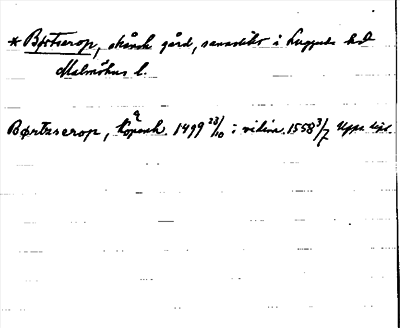 * Børtserop, skånsk gård, sannolikt i Luggude hd
Malmöhus l.
Børtzserop, Köpenh. 1499 23/10 i vidim. 1558 3/7 Upps. dipl.